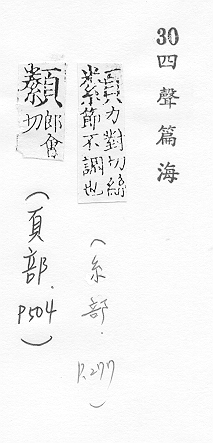 30
四聲篇海
力對切絲
節不調也
(糸部. P.277)
郎會
切
(頁部. P504)